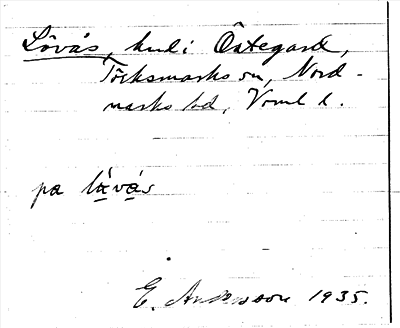 Lövås, hmd i Östegard,
Töcksmarks sn, Nord-
marks hd, Vrml l.
pa lävás
E. Andersson 1935.